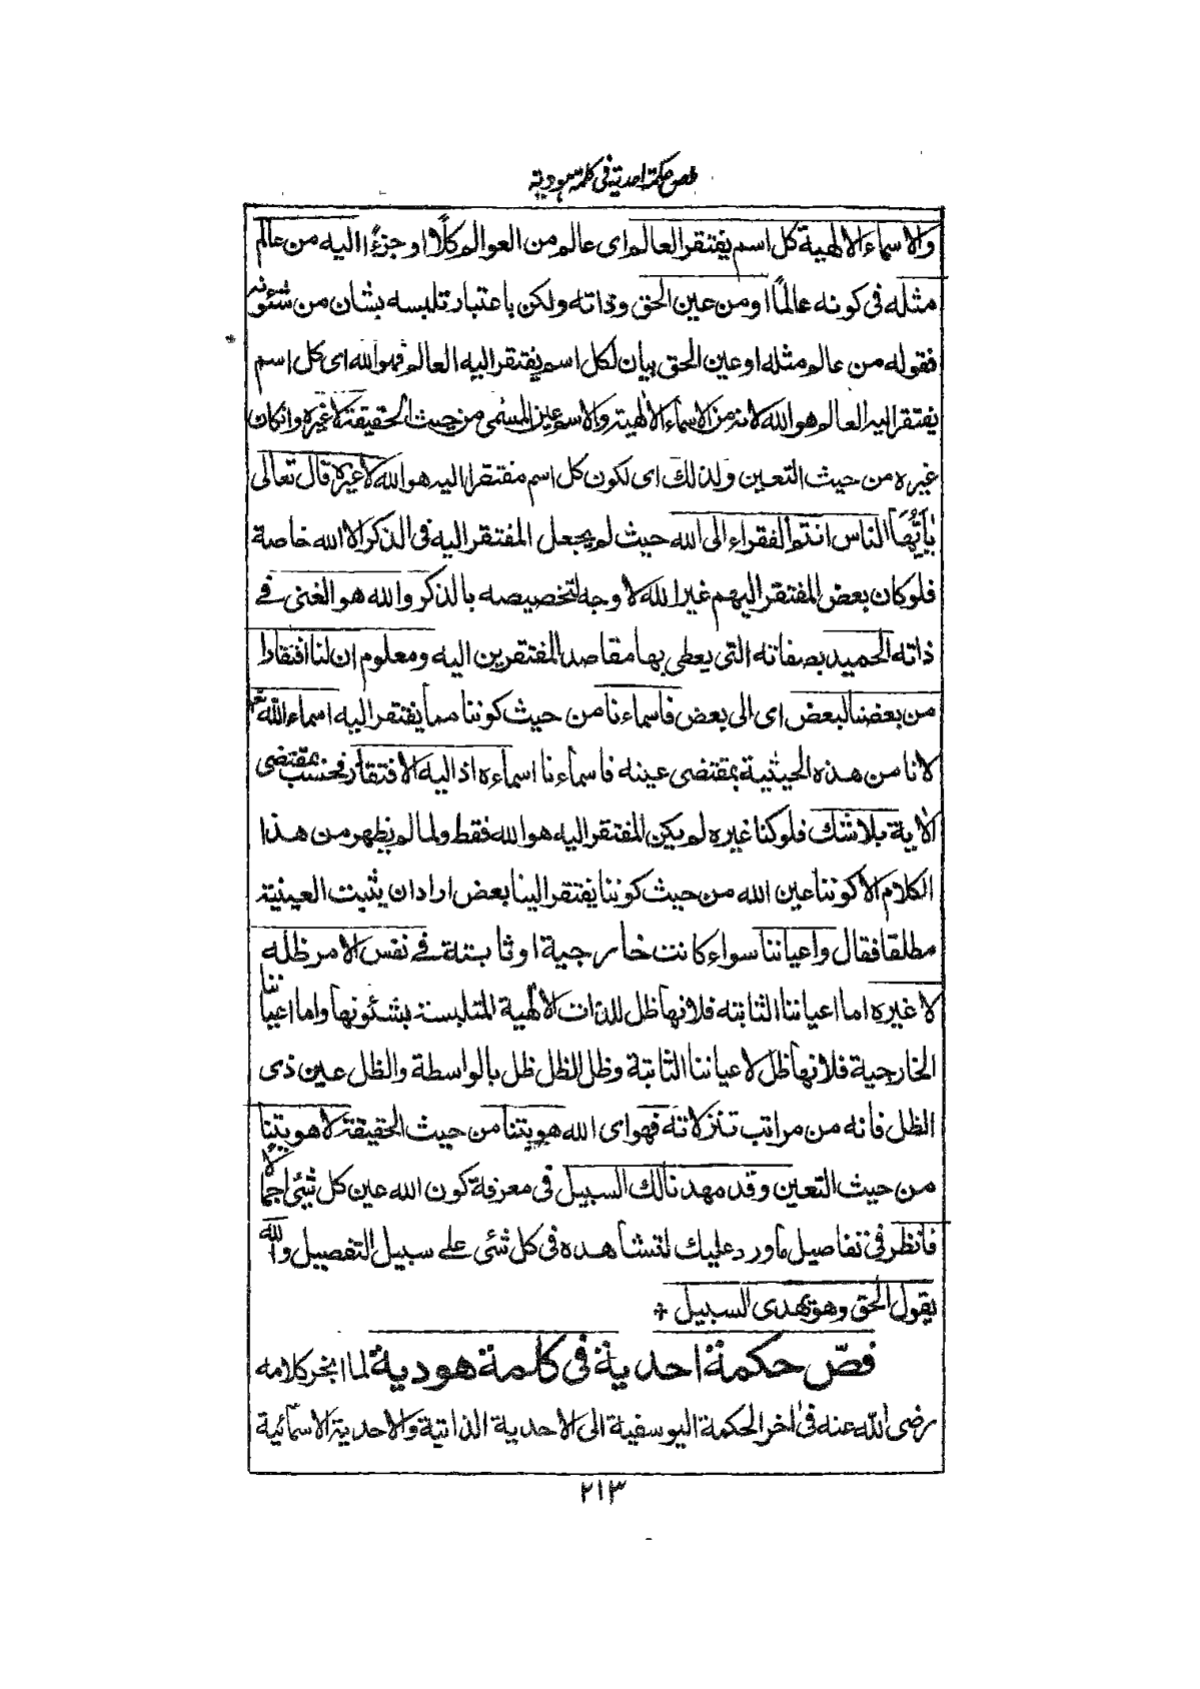 فص حكمة احدية فى كلمة هودية
والاسماء الالهية كل اسم يفتقر العالم اى عالم من العوالم كلًا او جزءًا اليه من عالم
مثله فى كونه عالمًا او من عين الحق وذاته ولكن باعتبار تلبسه بشان من شئونه
فقوله من عالم مثله او عين الحق بيان لكل اسم يفتقر اليه العالم فهو الله اى كل اسم
يفتقر اليه العالم هو الله لانه من الاسماء الالهية والاسم عين المسمى من حيث الحقيقة لا غيره وان كان
غيره من حيث التعين ولذلك اى لكون كل اسم مفتقرا اليه هو الله لا غيره قال تعالى
يٰاَيُّهَا الناس انتم الفقراء الى الله حيث لم يجعل المفتقر اليه فى الذكر الا الله خاصة
فلو كان بعض المفتقر اليهم غير الله لا وجه لتخصيصه بالذكر والله هو الغنى فى
ذاته الحميد بصفاته التى يعطى بها مقاصد المفتقرين اليه ومعلوم ان لنا افتقارا
من بعضنا لبعض اى الى بعض فاسماءنا من حيث كوننا مما يفتقر اليه اسماء الله تعالى
لانا من هذه الحيثية بمقتضى عينه فاسماءنا اسماءه اذ اليه الافتقار فحسب بمقتضى
الاية بلا شك فلو كنا غيره لم يكن المفتقر اليه هو الله فقط ولما لم يظهر من هذا
الكلام الا كوننا عين الله من حيث كوننا يفتقر الينا بعض اراد ان يثبت العينية
مطلقا فقال واعياننا سواء كانت خارجية او ثابتة فى نفس الامر ظله
لا غيره اما اعياننا الثابته فلانها ظل للذات الالهية المتلبسة بشئونها واما اعياننا
الخارجية فلانها ظل لاعياننا الثابتة وظل الظل ظل بالواسطة والظل عين ذى
الظل فانه من مراتب تنزلاته فهو اى الله هويتنا من حيث الحقيقة لا هويتنا
من حيث التعين وقد مهدنا لك السبيل فى معرفة كون الله عين كل شئى اجمالا
فانظر فى تفاصيل ما ورد عليك لتشاهده فى كل شئى على سبيل التفصيل والله
يقول الحق وهو يهدى السبيل *
فصّ حكمة احدية فى كلمة هودية لما انجر كلامه
رضى الله عنه فى اٰخر الحكمة اليوسفية الى الاحدية الذاتية والاحدية الاسمائية
٢١٣